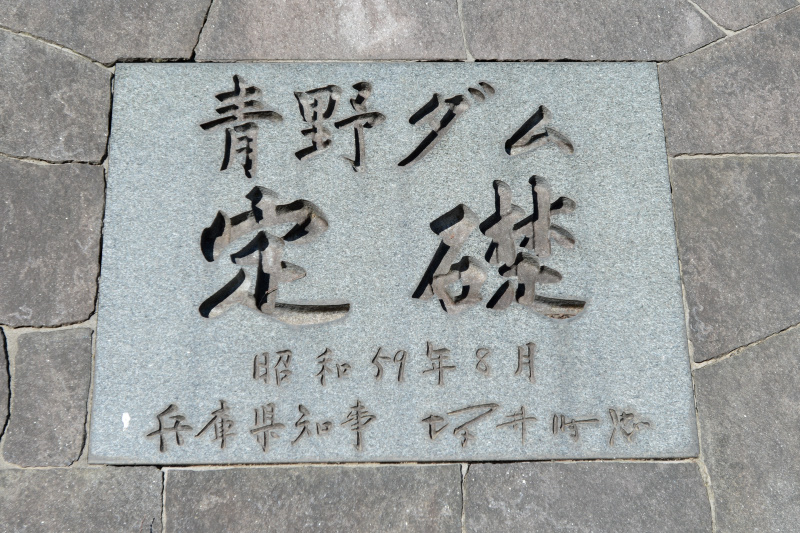 青野ダム
定礎
昭和59年8月
兵庫県知事 坂井時忠